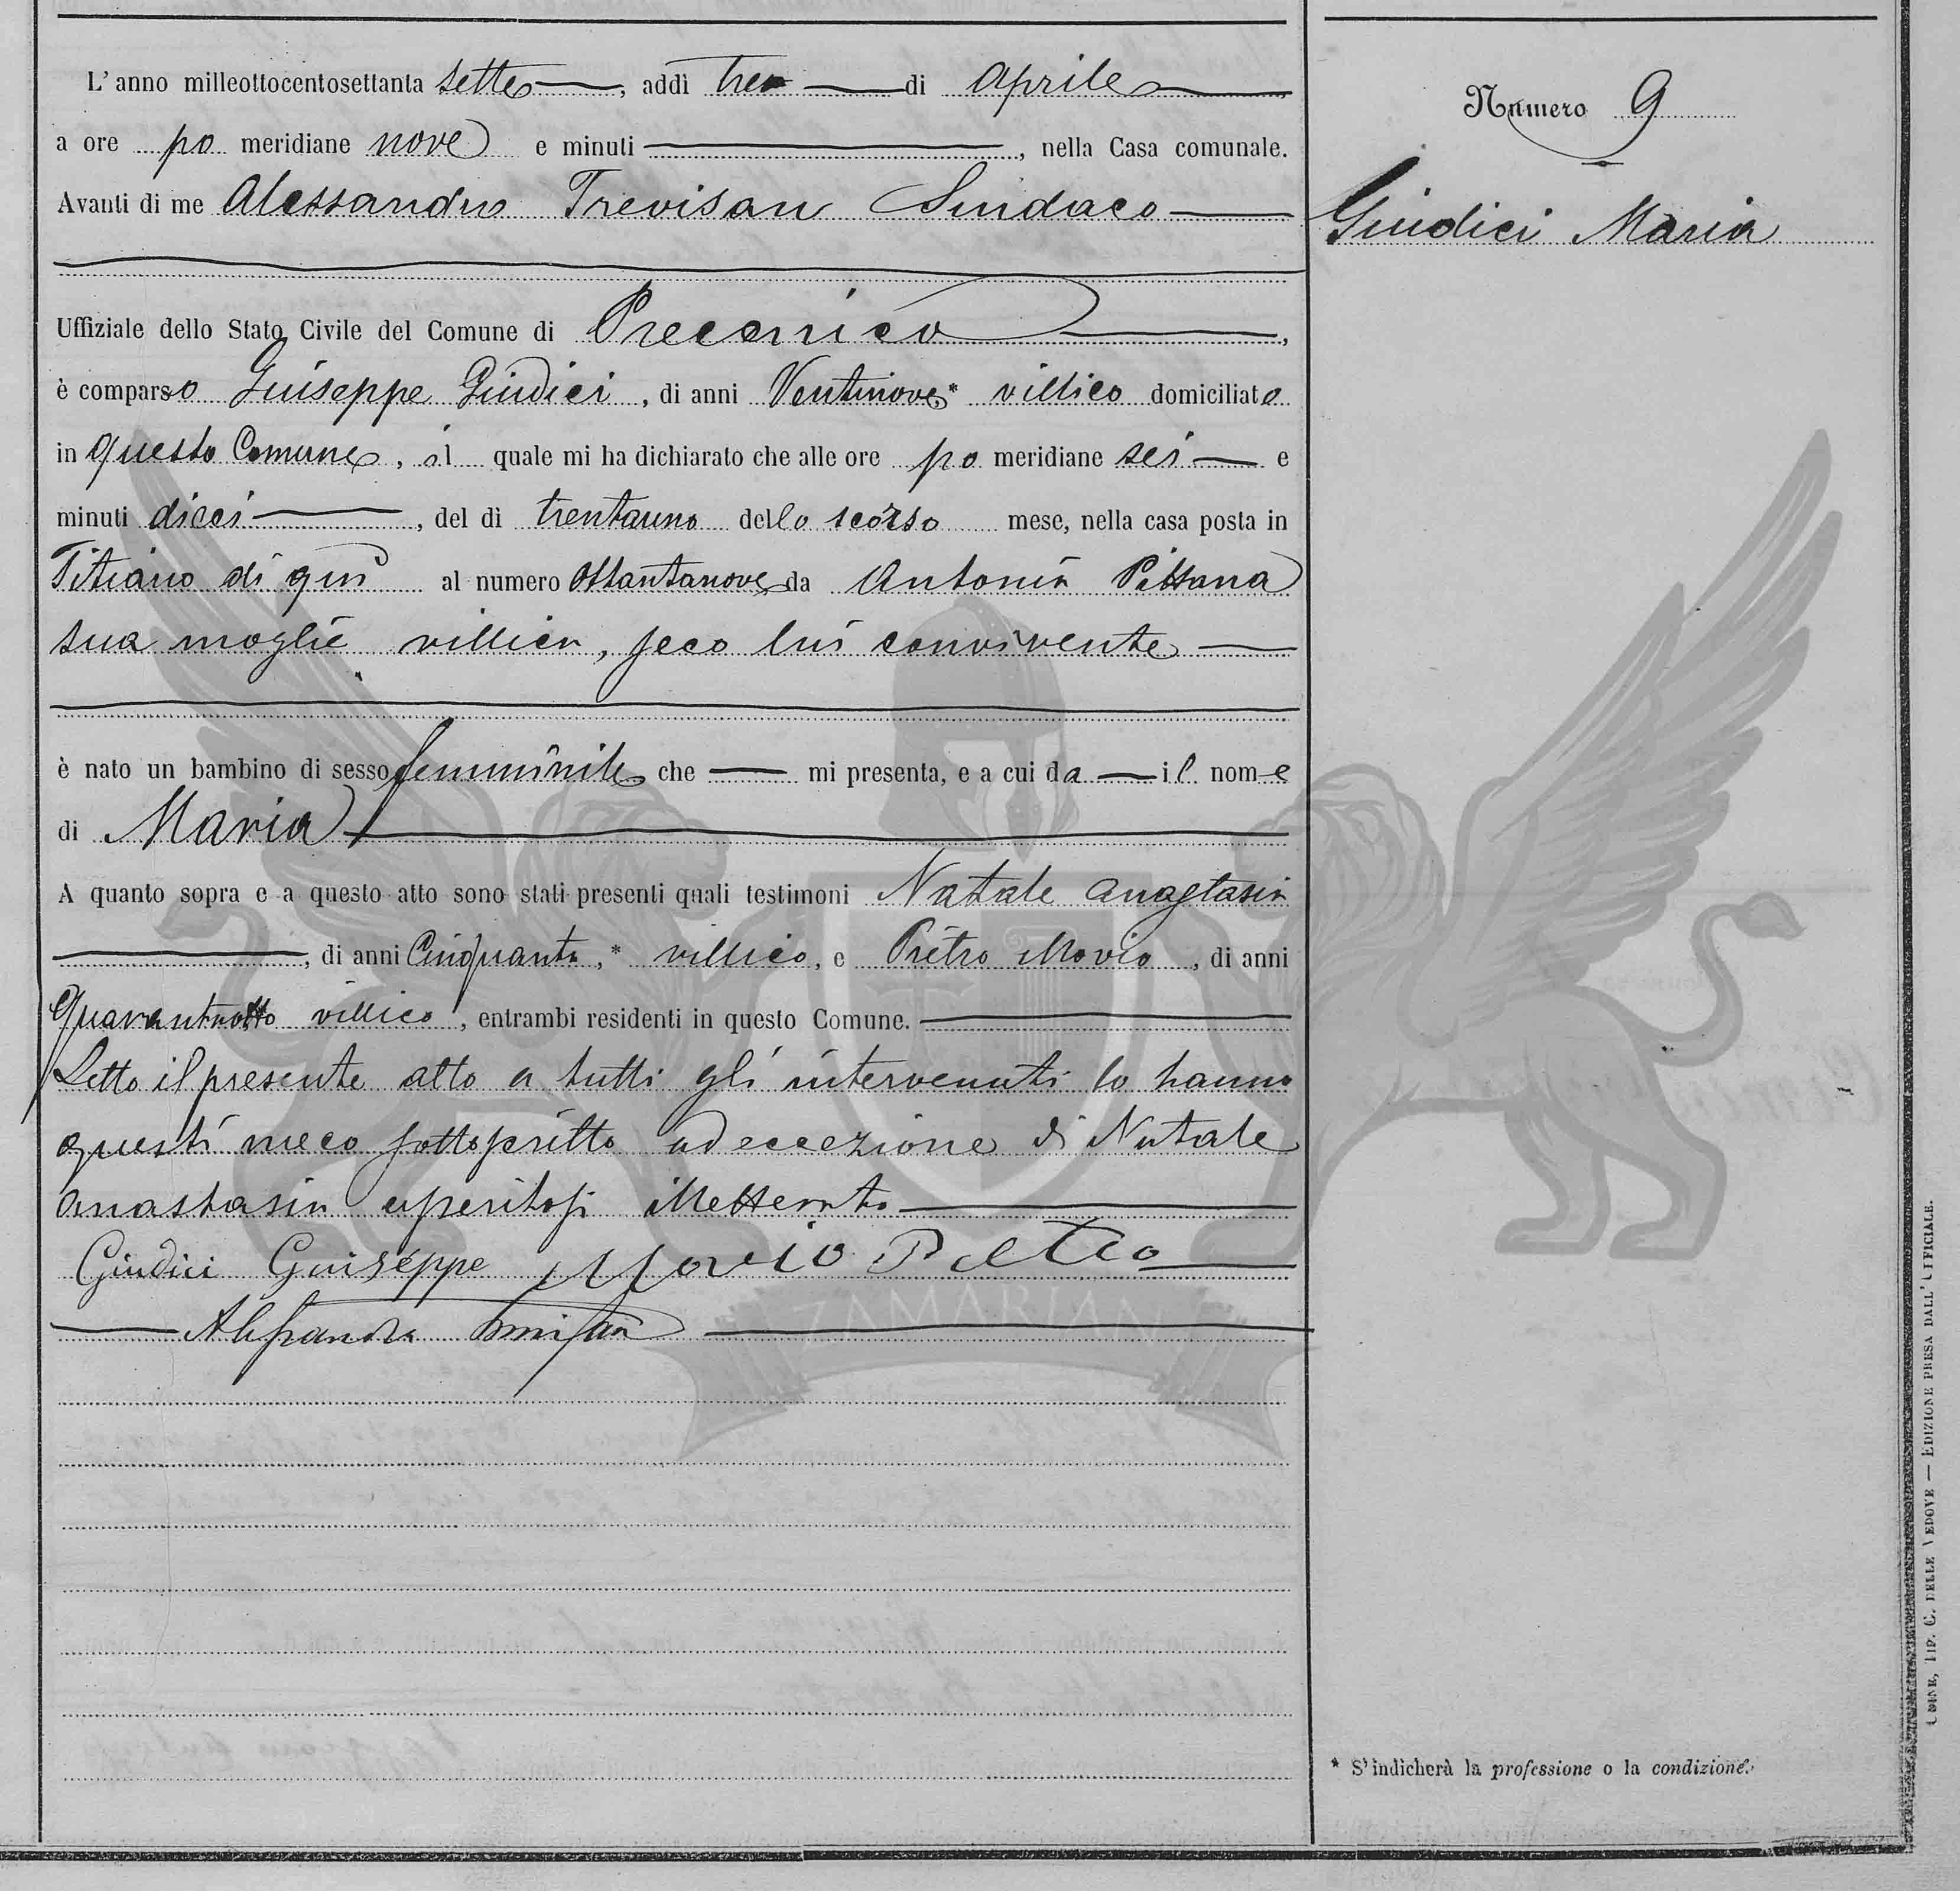 L'anno milleottocentosettanta sette, addì tre di Aprile
a ore po meridiane nove e minuti, nella Casa comunale.
Avanti di me Alessandro Trevisan Sindaco
Uffiziale dello Stato Civile del Comune di Precenico,
è comparso Giuseppe Giudici, di anni Ventinove* villico domiciliato
in questo Comune, il quale mi ha dichiarato che alle ore po meridiane sei e
minuti dieci, del dì trentauno dello scorso mese, nella casa posta in
Titiano di qui al numero ottantanove da Antonia Pittana
sua moglie villica, seco lui convivente
è nato un bambino di sesso femminile che mi presenta, e a cui da il nome
di Maria
A quanto sopra e a questo atto sono stati presenti quali testimoni Natale Anastasia
, di anni Cinquanta,* villico, e Pietro Movio, di anni
Quarantaotto villico, entrambi residenti in questo Comune.
Letto il presente atto a tutti gli intervenuti lo hanno
questi meco sottoscritto ad eccezione di Natale
Anastasia illetterato
Giudici Giuseppe Movio Pietro
Alessandro Trevisan
Numero 9
Giudici Maria
* S'indicherà la professione o la condizione.
UDINE, TIP. C. DELLE VEDOVE — EDIZIONE PRESA DALL'UFFICIALE.
ZAMARIAN